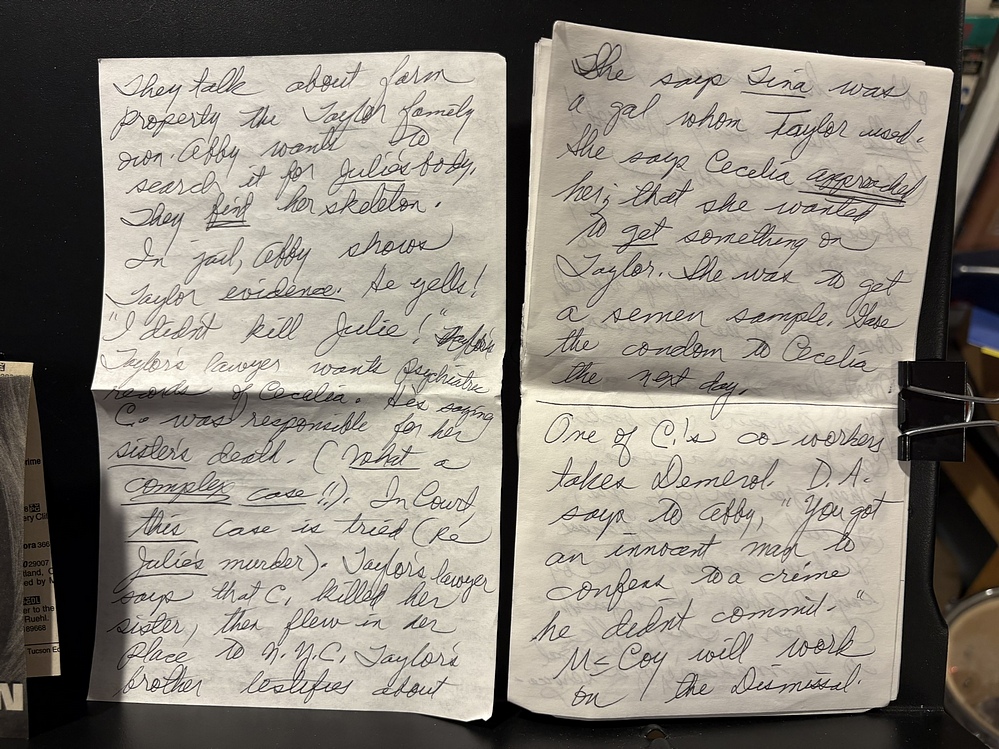 They talk about farm
property the Taylor family
own. Abby wants to
search it for Julie's body.
They find her skeleton.
In jail, Abby shows
Taylor evidence. He yells!
"I didn't kill Julie!"
Taylor's lawyer wants psychiatric
records of Cecelia. He's saying
C. was responsible for her
sister's death. (What a
complex case!!). In Court,
this case is tried (re
Julie's murder). Taylor's lawyer
says that C. killed her
sister, then flew in her
place to N.Y.C. Taylor's
brother testifies about
She says Tina was
a gal whom Taylor used.
She says Cecelia approached
her; that she wanted
to get something on
Taylor. She was to get
a semen sample. Gave
the condom to Cecelia
the next day.
One of C.'s co-workers
takes Demerol. D.A.
says to Abby, "You got
an innocent man to
confess to a crime
he didnt commit."
McCoy will work
on the Dismissal.
rime
ery Cli
ora 366
029007
tland, C
ed by M
er to the
Ruehl.
189668
Tucson Ed
N